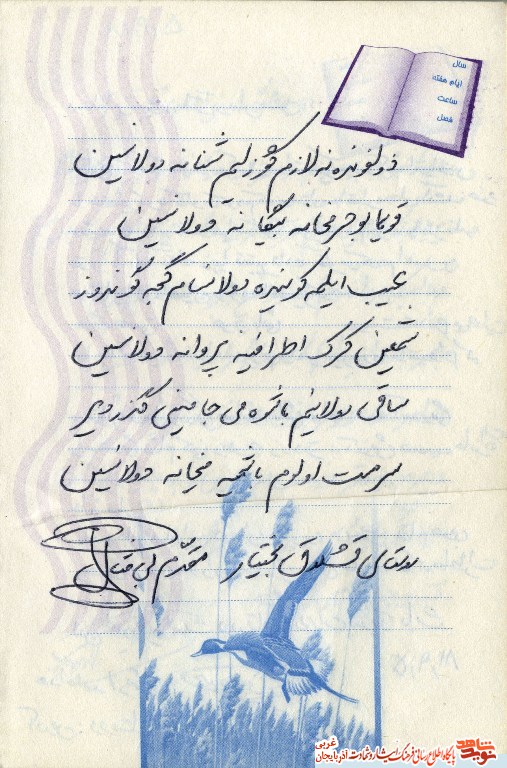 سال
ایام هفته
ساعت
فصل
زولفونده نه لازم گوزلیم شانه دولانسین
قویما بو جرمخانه بیگانه دولانسین
عیب ایلمه کوینیده دولانسام گجه گوندوز
شمعین گرک اطرافینه پروانه دولانسین
ساقی دولانیم باشوه می جامینی گزدیر
سرمست اولوم باشیمه میخانه دولانسین
روستای قشلاق بختیار مقدم
نوید شاهد
پایگاه اطلاع رسانی فرهنگ ایثار و شهادت آذربایجان غربی